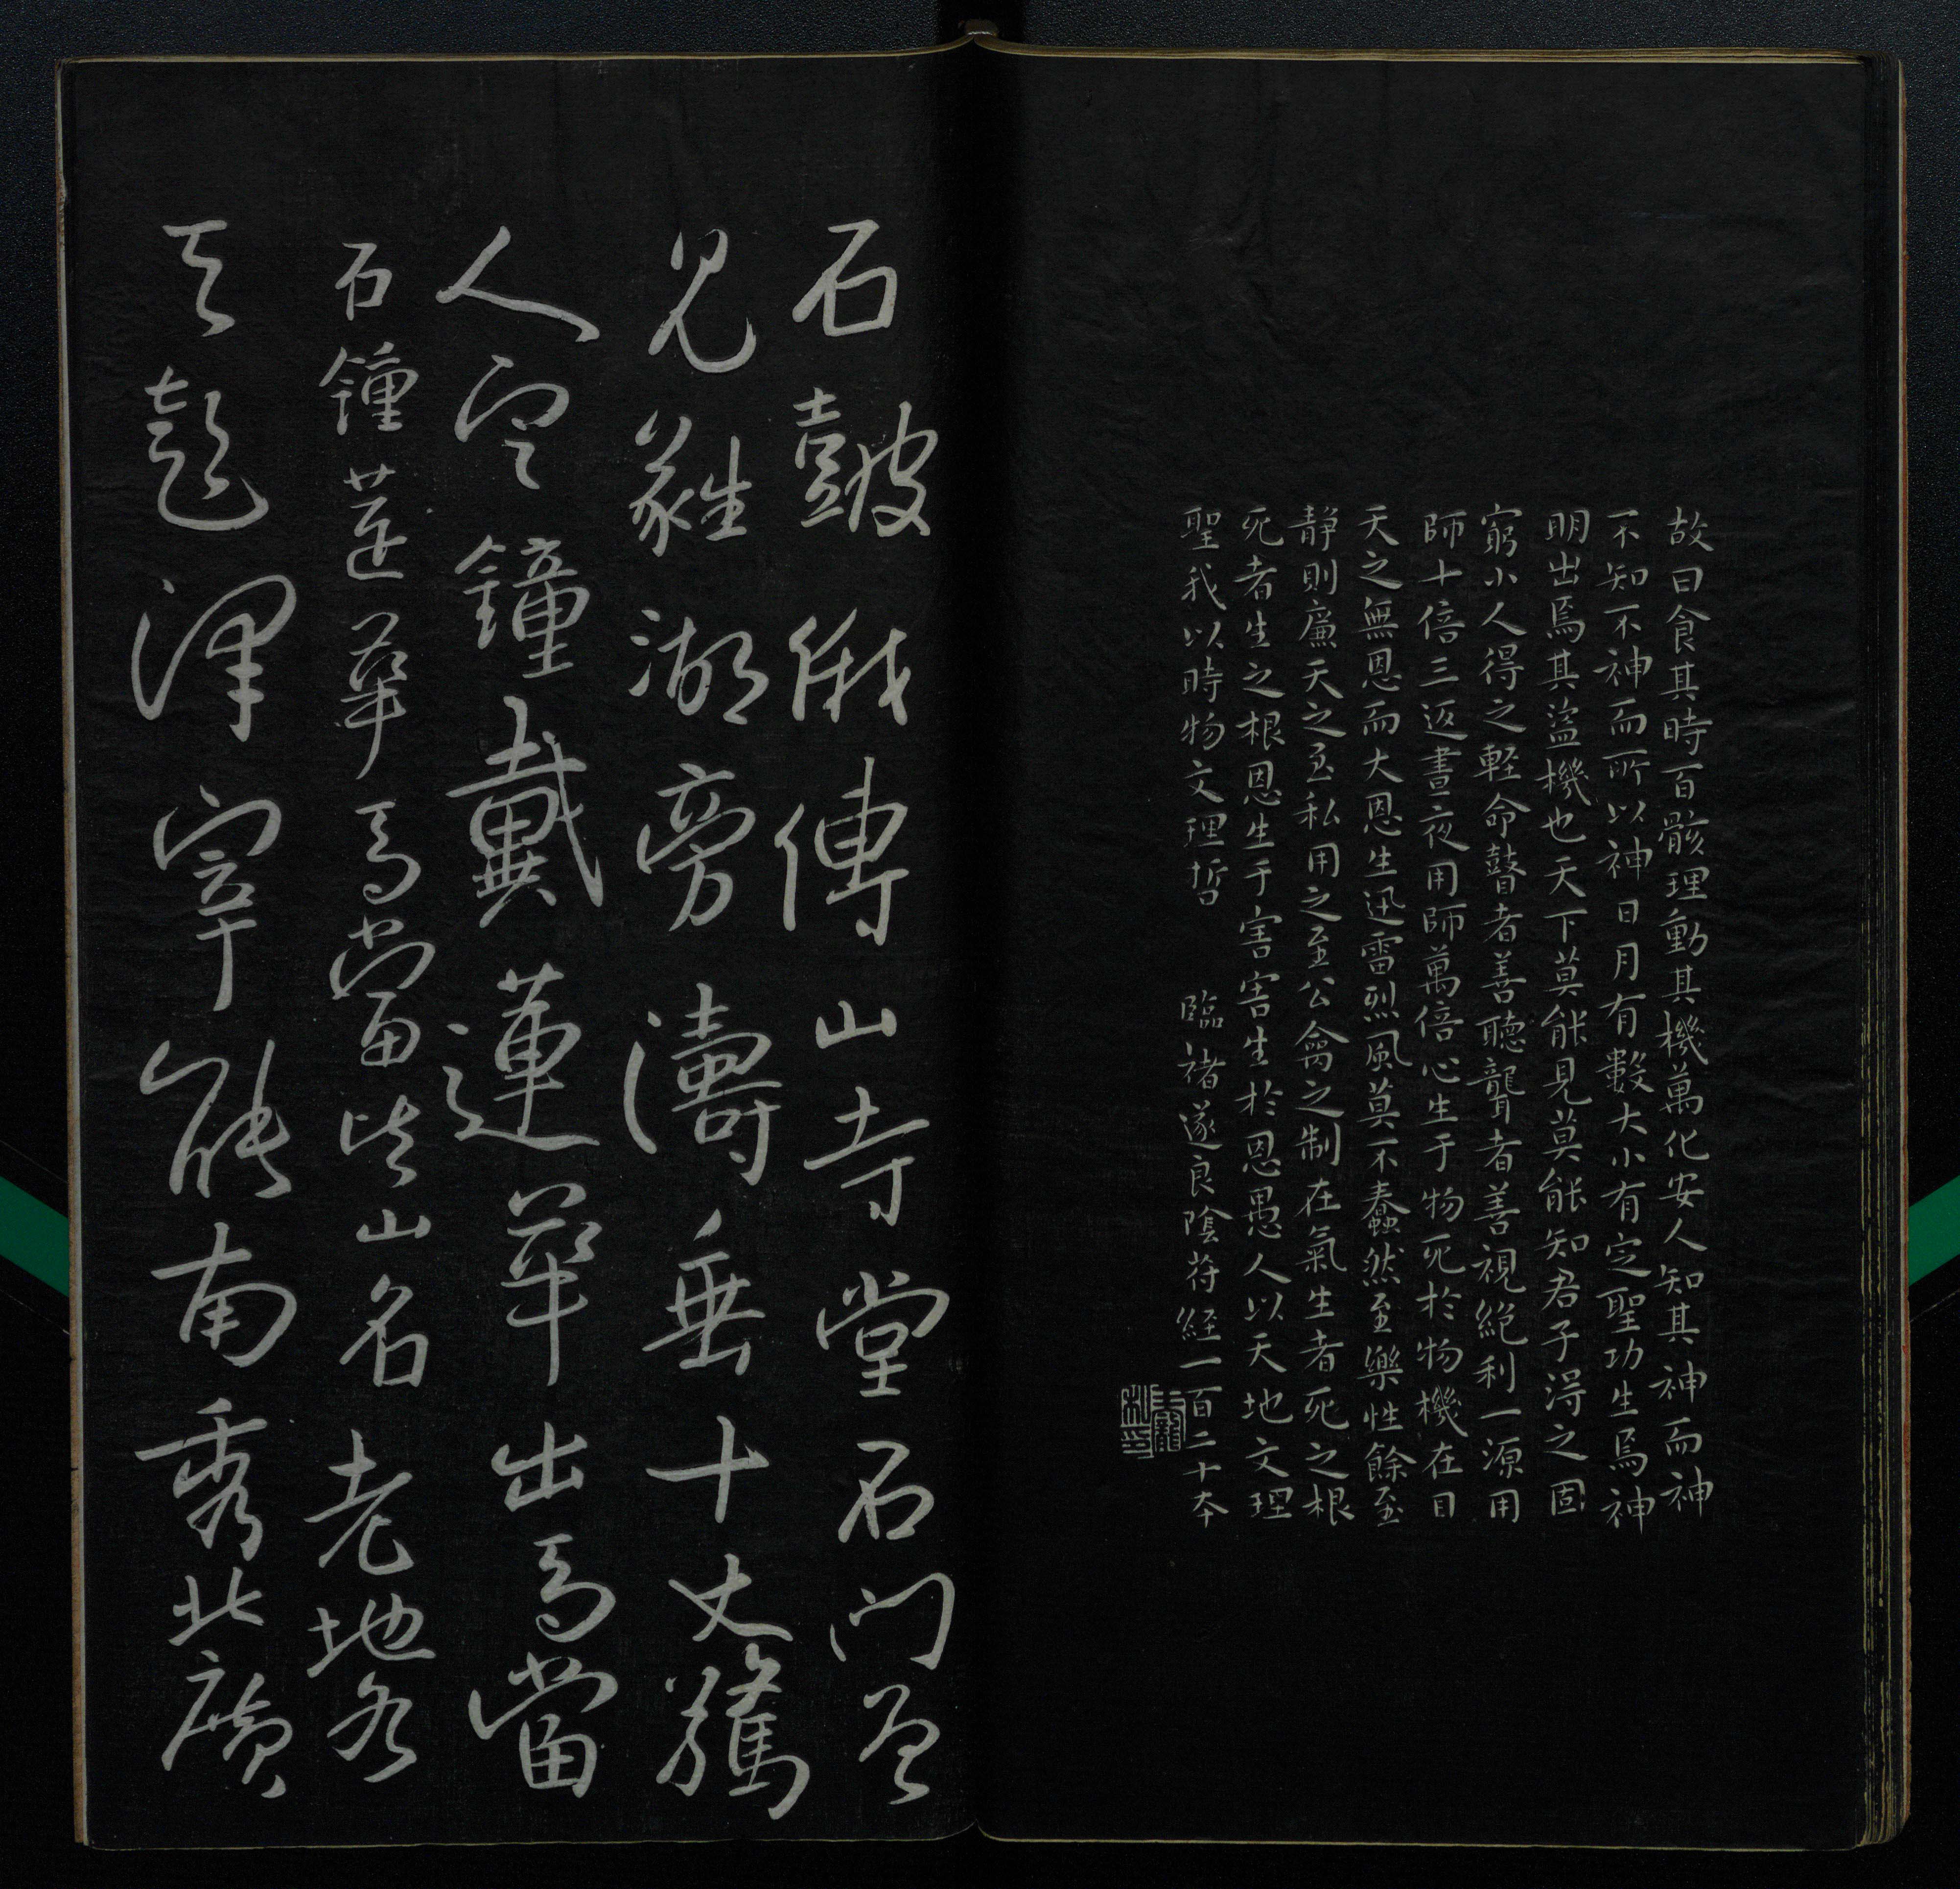 故曰食其時百骸理動其機萬化安人知其神而神
不知不神而所以神日月有數大小有定聖功生焉神
明出焉其盜機也天下莫能見莫能知君子得之固
窮小人得之輕命瞽者善聽聾者善視絕利一源用
師十倍三返晝夜用師萬倍心生于物死於物機在目
天之無恩而大恩生迅雷烈風莫不蠢然至樂性餘至
靜則廉天之至私用之至公禽之制在氣生者死之根
死者生之根恩生于害害生於恩愚人以天地文理
聖我以時物文理哲 臨褚遂良陰符經一百二十本
石皷俄傳山寺堂石门
見湖旁濤垂十丈驚
人望鐘戴蓮華出馬當
石鐘蓮華馬當皆山名 老地
天澤宰能南秀北廣